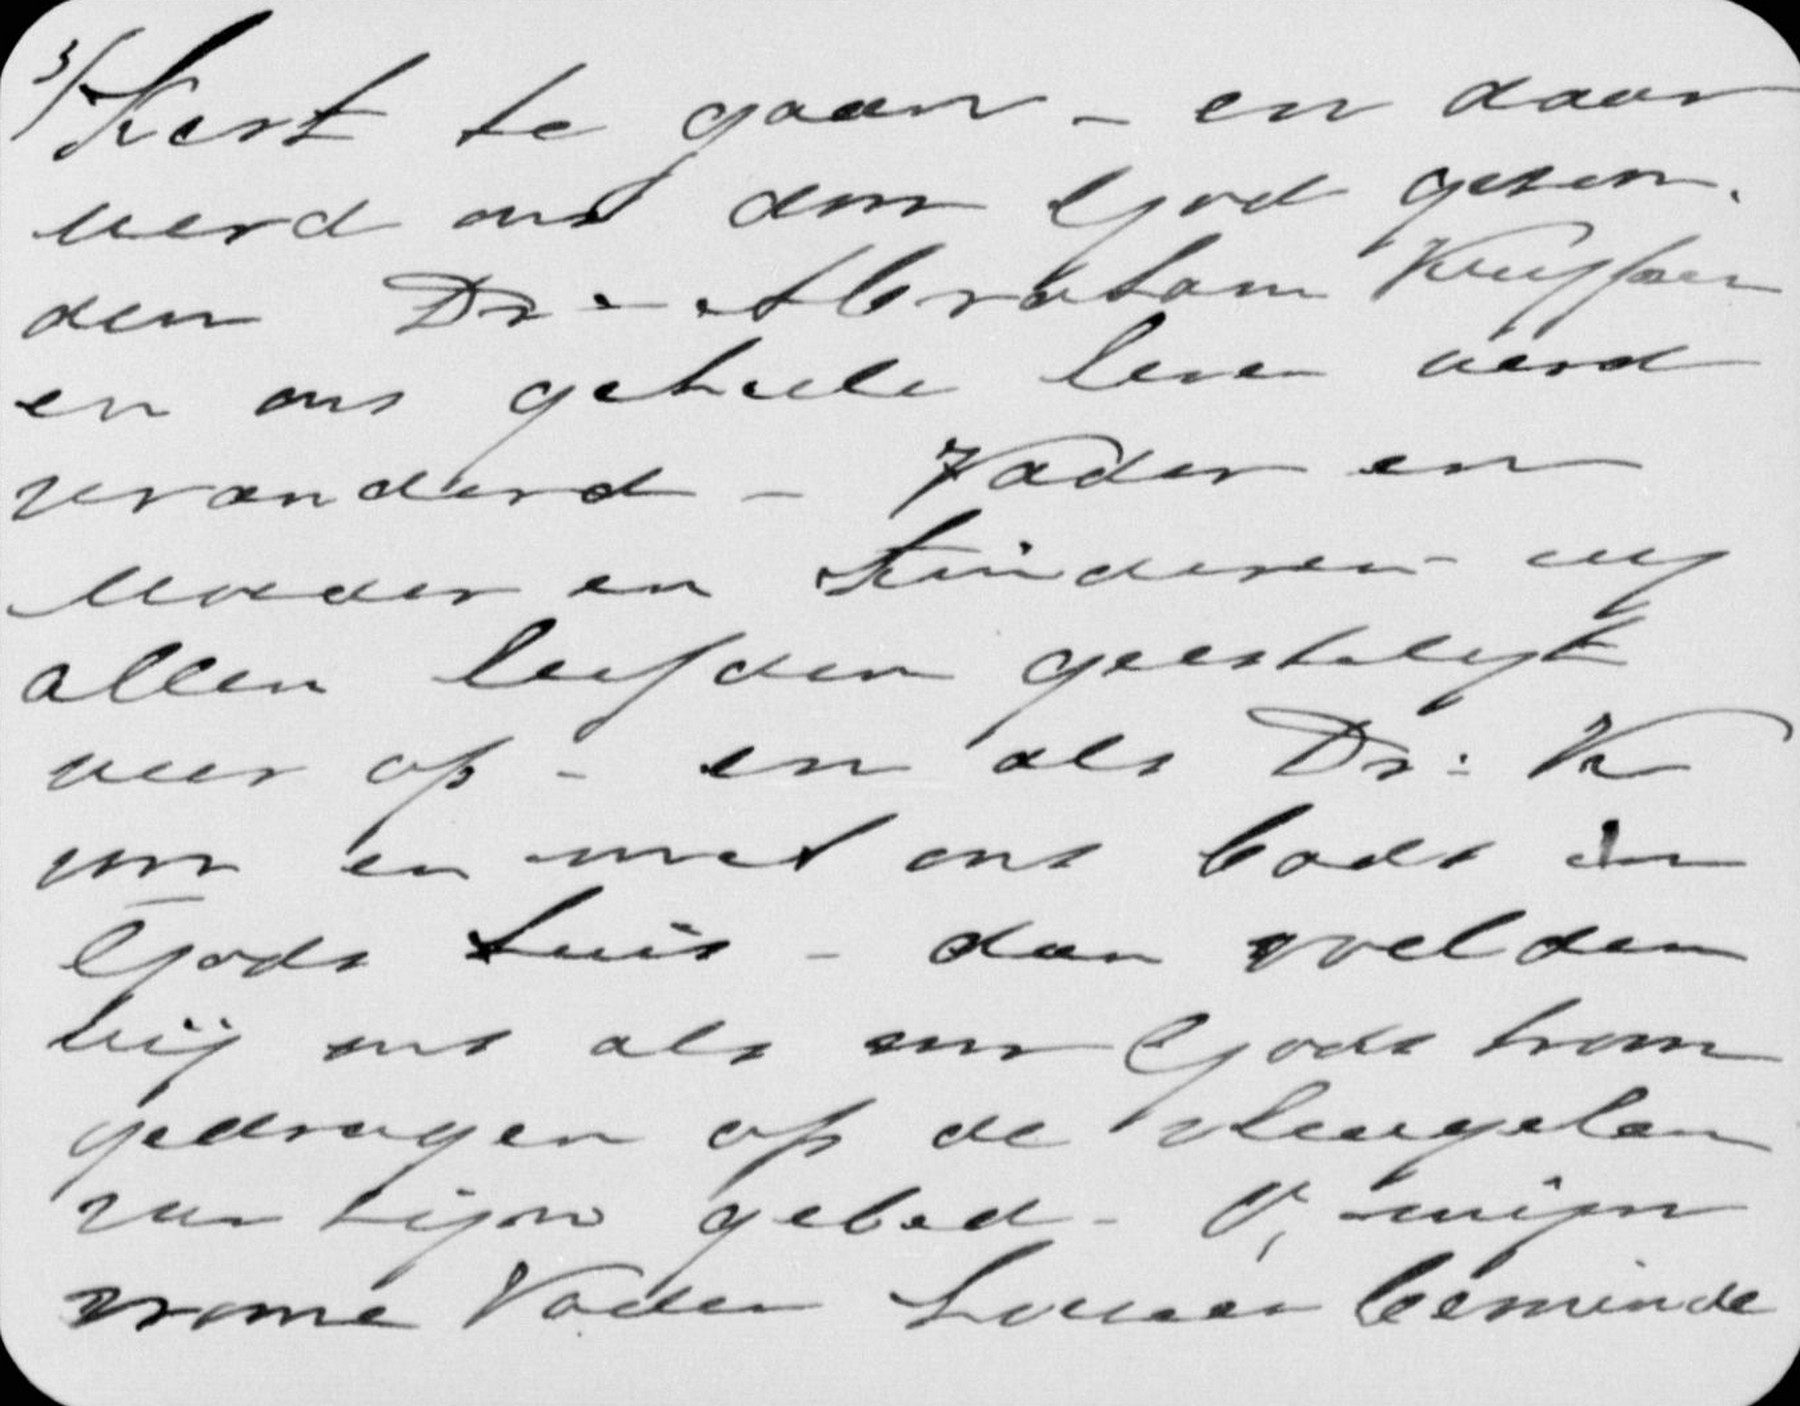 3/ Kerk te gaan - en daar
werd ons door God gezon-
den Dr - Abraham Kuyper
en ons geheele leven werd
veranderd - Vader en
Moeder en kinderen - wij
allen leefden geestelijk
weer op - en als Dr: K
voor en met ons bads in
Gods huis - dan voelden
wij ons als voor Gods troon
gedragen op de vleugelen
van zijn gebed - O, mijn
vrome Vader hoezeer beminde